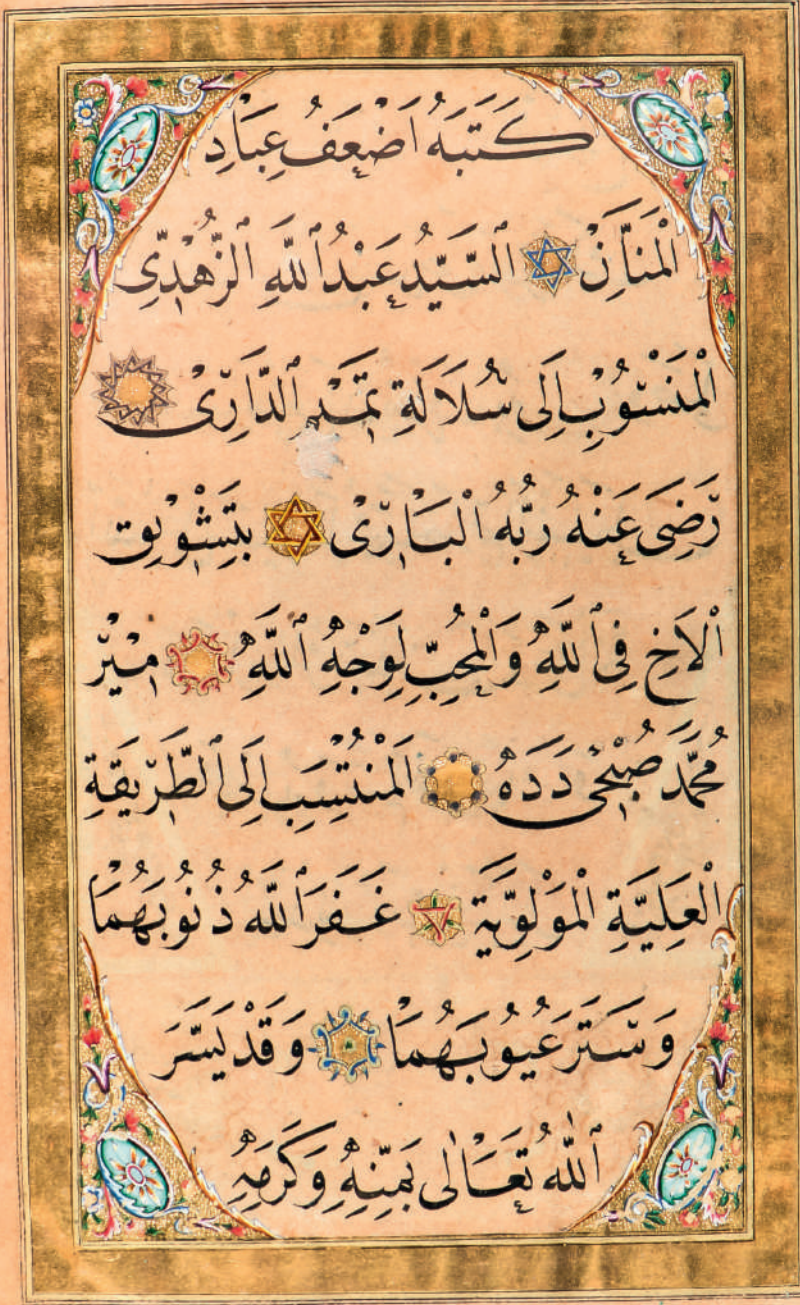 كَتَبَهُ اَضْعَفُ عِبَادِ
الْمَنَّانِ السَّيِّدُ عَبْدُ اللّٰهِ الزُّهْدِى
الْمَنْسُوبِ اِلَى سُلَالَةِ تَمِيمِ الدَّارِىْ
رَضِىَ عَنْهُ رَبُّهُ الْبَارِىْ بِتَشْوِيقِ
الْاَخِ فِى اللّٰهِ وَالْمُحِبِّ لِوَجْهِ اللّٰهِ مِيْرْ
مُحَمَّد صُبْحِى دَدَهْ اَلْمُنْتَسِبِ اِلَى الطَّرِيقَةِ
الْعَلِيَّةِ الْمَوْلَوِيَّةِ غَفَرَ اللّٰهُ ذُنُوبَهُمَا
وَسَتَرَ عُيُوبَهُمَا وَقَدْ يَسَّرَ
اللّٰهُ تَعَالٰى بِمَنِّهِ وَكَرَمِهِ